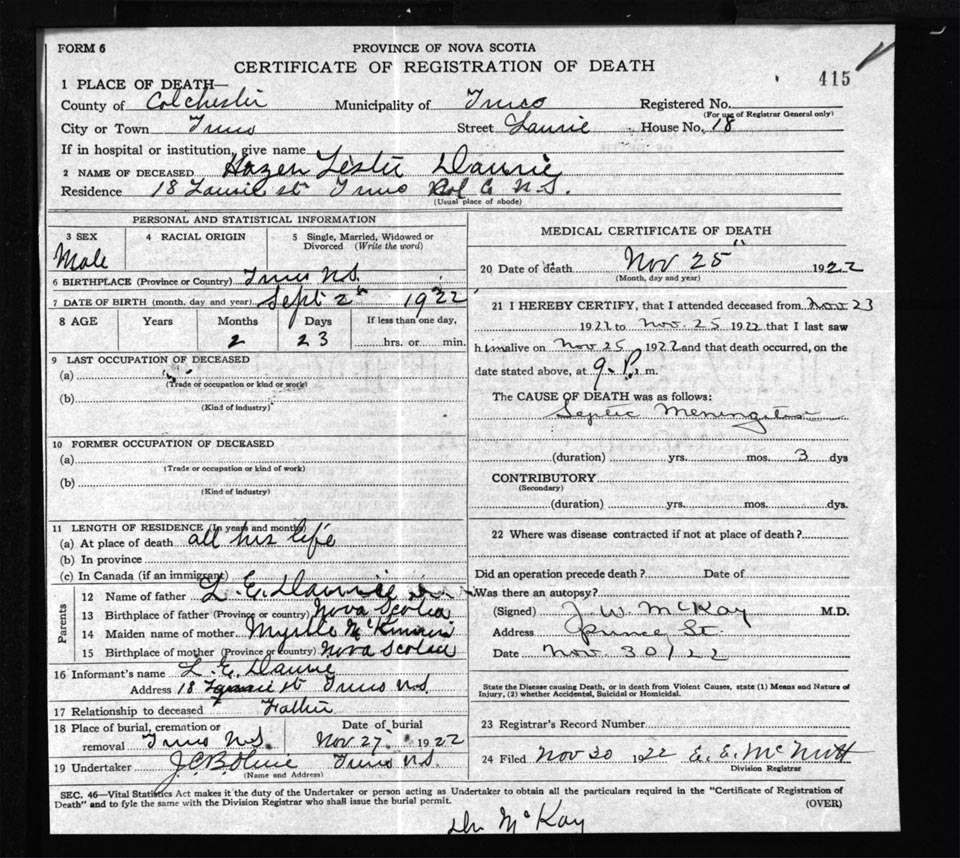 FORM 6
PROVINCE OF NOVA SCOTIA
CERTIFICATE OF REGISTRATION OF DEATH
415
1 PLACE OF DEATH—
County of Colchester Municipality of Truro Registered No.
(For use of Registrar General only)
City or Town Truro Street Laurie House No. 18
If in hospital or institution, give name
2 NAME OF DECEASED Hazen Lester Daurie
Residence 18 Laurie st Truro Col C N.S.
(Usual place of abode)
PERSONAL AND STATISTICAL INFORMATION
3 SEX 4 RACIAL ORIGIN 5 Single, Married, Widowed or Divorced (Write the word)
Male
6 BIRTHPLACE (Province or Country) Truro N.S.
7 DATE OF BIRTH (month, day and year) Sept 2nd 1922
8 AGE Years Months Days If less than one day,
2 23 hrs. or min.
9 LAST OCCUPATION OF DECEASED
(a)
(Trade or occupation or kind or work)
(b)
(Kind of industry)
10 FORMER OCCUPATION OF DECEASED
(a)
(Trade or occupation or kind of work)
(b)
(Kind of industry)
11 LENGTH OF RESIDENCE (In years and months)
(a) At place of death all his life
(b) In province
(c) In Canada (if an immigrant)
Parents
12 Name of father L. E. Daurie
13 Birthplace of father (Province or country) Nova Scotia
14 Maiden name of mother Myrtle
15 Birthplace of mother (Province or country) Nova Scotia
16 Informant's name L. E. Daurie
Address 18 Laurie st Truro N.S.
17 Relationship to deceased Father
18 Place of burial, cremation or removal Truro N.S. Date of burial Nov 27 1922
19 Undertaker Truro N.S.
(Name and Address)
MEDICAL CERTIFICATE OF DEATH
20 Date of death Nov 25th 1922
(Month, day and year)
21 I HEREBY CERTIFY, that I attended deceased from Nov 23
1922 to Nov. 25 1922 that I last saw
him alive on Nov 25 1922 and that death occurred, on the
date stated above, at 9. P. m.
The CAUSE OF DEATH was as follows:
Septic Meningitis
(duration) yrs. mos. 3 dys
CONTRIBUTORY
(Secondary)
(duration) yrs. mos. dys.
22 Where was disease contracted if not at place of death?
Did an operation precede death? Date of
Was there an autopsy?
(Signed) J. W. McKay M.D.
Address Prince St.
Date Nov. 30/22
State the Disease causing Death, or in death from Violent Causes, state (1) Means and Nature of
Injury, (2) whether Accidental, Suicidal or Homicidal.
23 Registrar's Record Number
24 Filed Nov 30 1922 E. E. McNutt
Division Registrar
SEC. 46—Vital Statistics Act makes it the duty of the Undertaker or person acting as Undertaker to obtain all the particulars required in the "Certificate of Registration of
Death" and to fyle the same with the Division Registrar who shall issue the burial permit.
(OVER)
Dr McKay